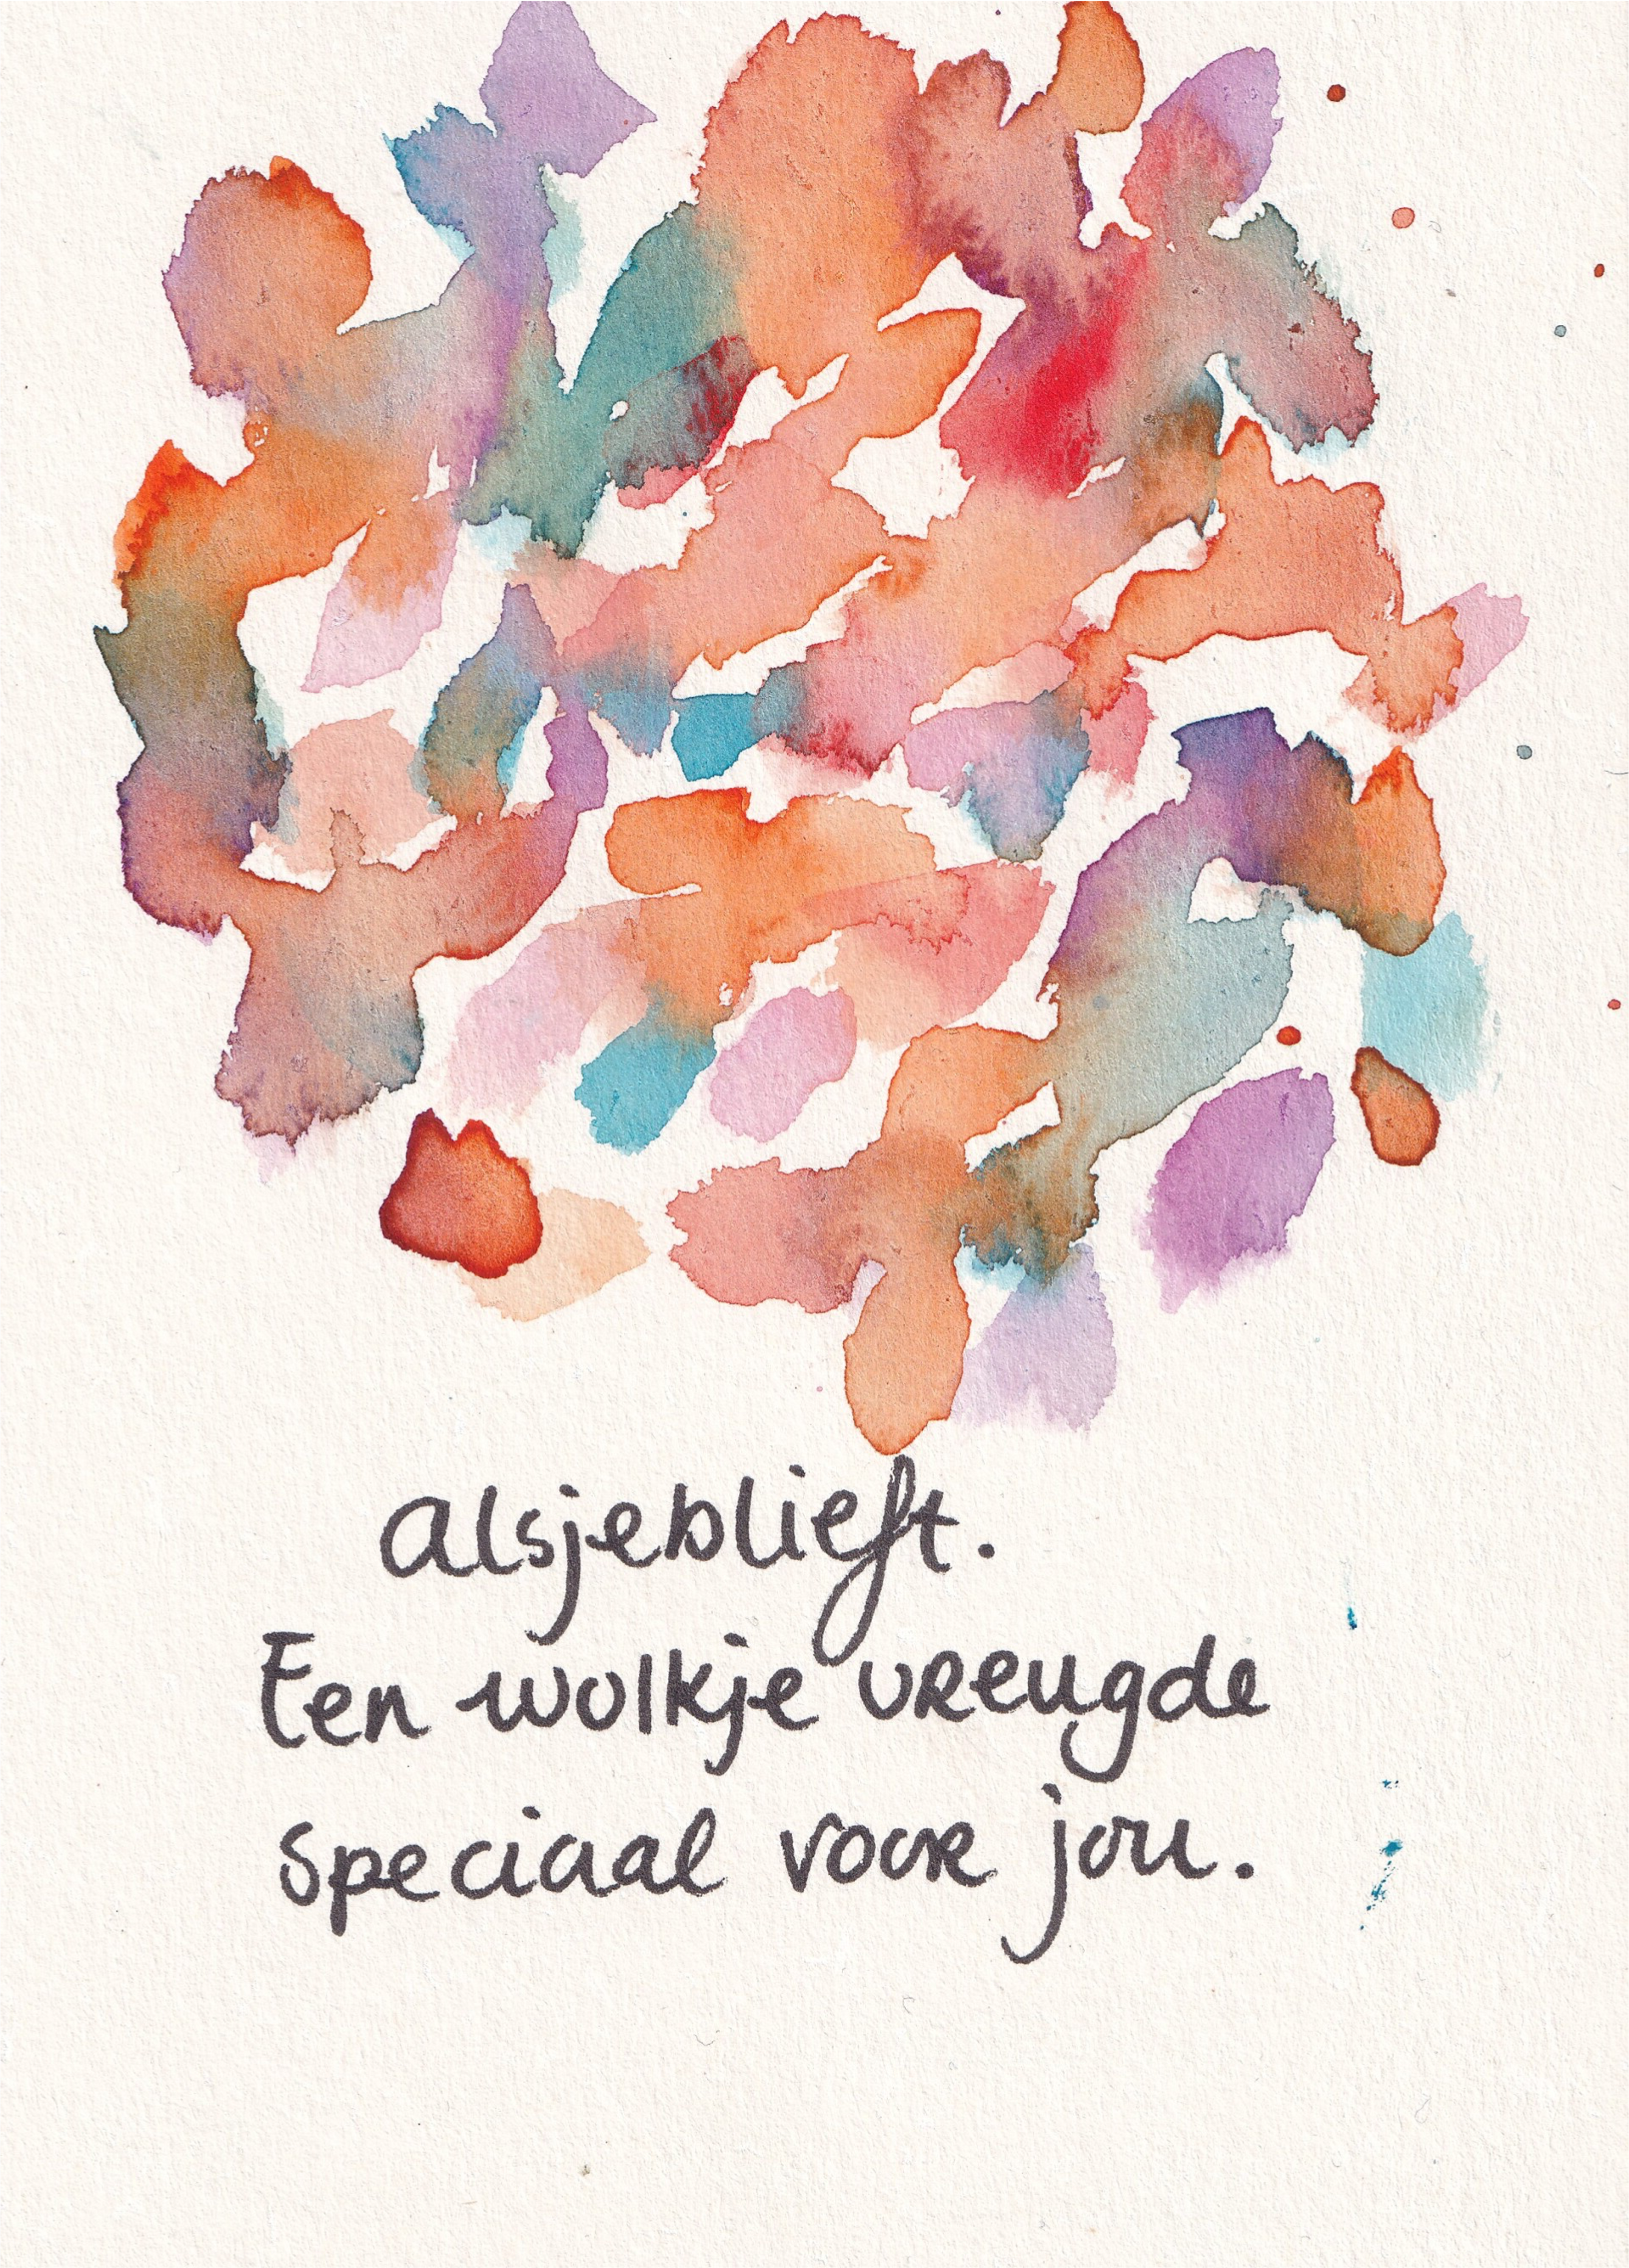 alsjeblieft.
Een wolkje vreugde
speciaal voor jou.